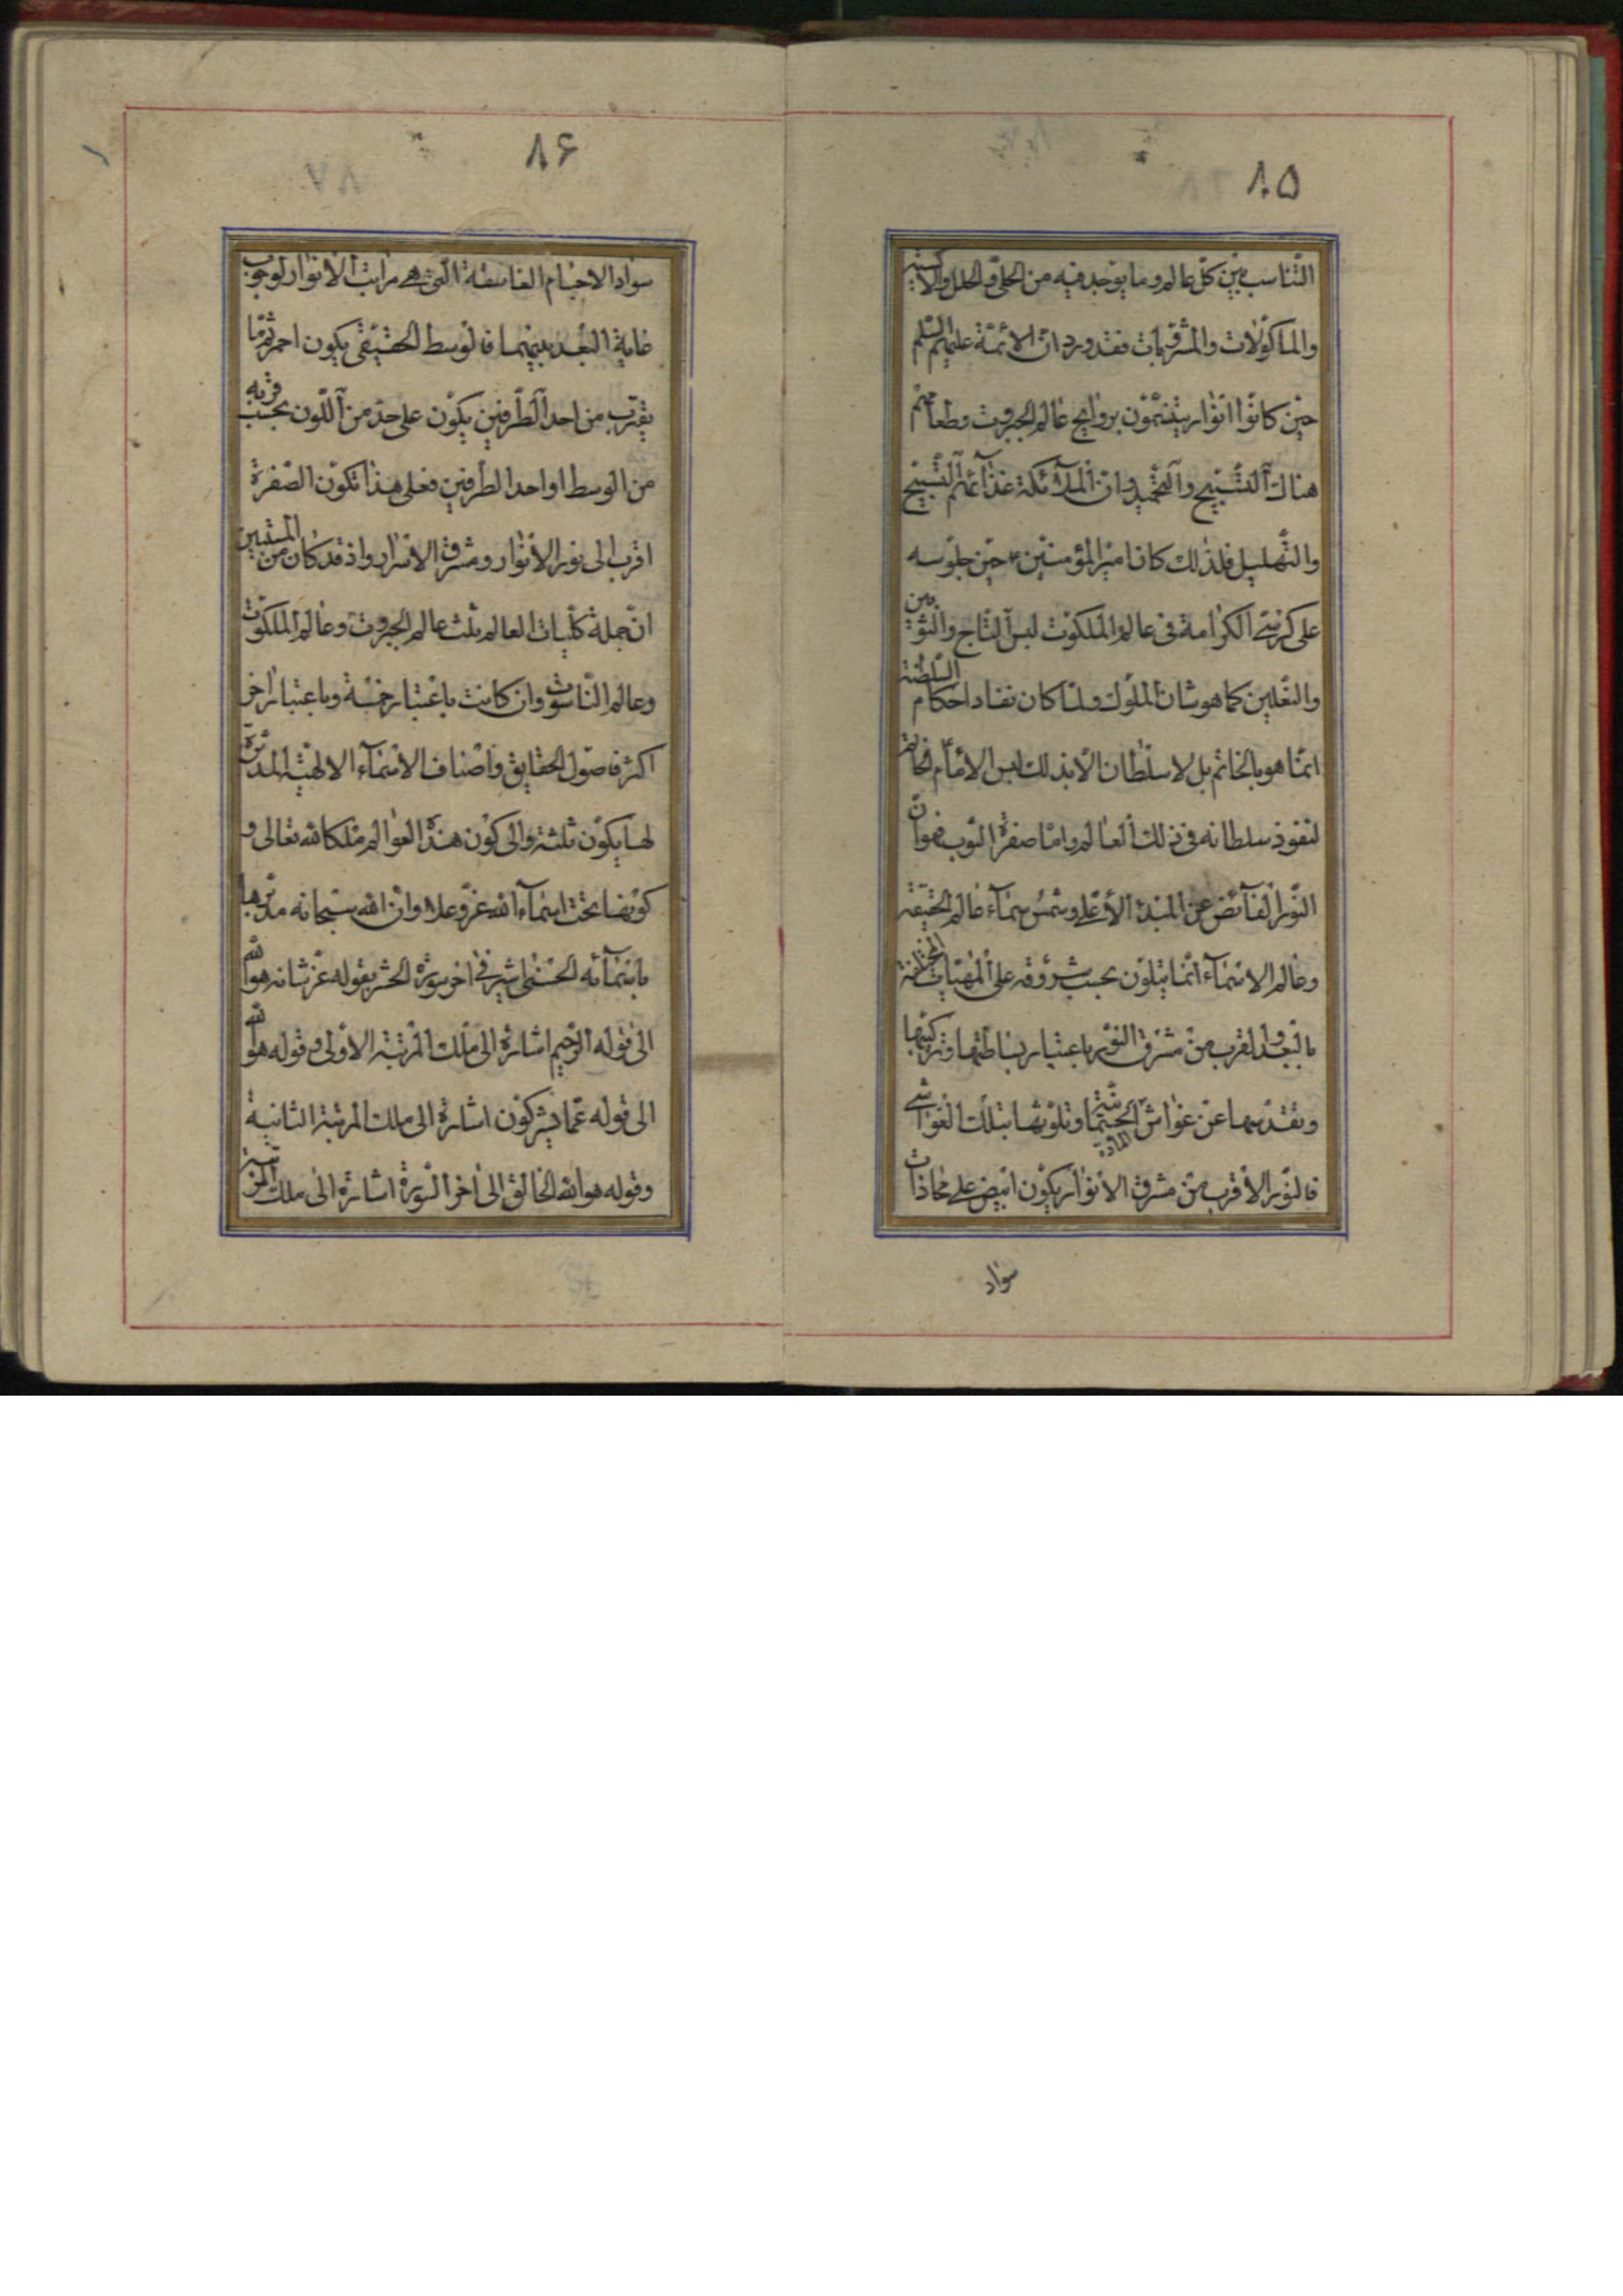 ۸۵
التّناسب بين كلّ عالم وما يوجد فيه من الحلىّ والحلل والاكسية
والماكولات والمشروبات فقد ورد انّ الائمّة عليهم السّلم
حين كانوا انوار يتنعّمون بروايح عالم الجبروت وطعامهم
هناك التّسبيح والتّحميد وانّ الملآئكة غذآئهم التّسبيح
والتّهليل فلذلك كان امير المؤمنين ع حين جلوسه
على كرسىّ الكرامة فى عالم الملكوت لبس التاج والثوبين
والنّعلين كما هو شان الملوك ولمّا كان نفاد احكام السّلطنة
انّما هو بالخاتم بل لا سلطان الّا بذلك لبس الامام الخاتم
لنفوذ سلطانه فى ذلك العالم وامّا صفرة الثوب فهو انّ
النّور الفآئض عن المبدء الأعلى وشمس سمآء عالم الحقيقة
وعالم الاسمآء انّما يتلوّن بحسب شروقه على المهيّات المختلفة
بالبعد والقرب من مشرق النّور باعتبار بساطتها وتركيبها
وتقدّسها عن غواشى الجسميّة المادّة وتلوّثها بتلك الغواشى
فالنّور الأقرب من مشرق الأنوار يكون ابيض على محاذات
سواد
۸۶
سواد الاجسام الغاسقة الّتى هى مراتب الأنوار لوجوب
غاية البعد بينهما فالوسط الحقيقى يكون احمر ثمّ ما
يقترب من احد الطّرفين يكون على حدّ من اللّون بحسب قربه
من الوسط او احد الطرفين فعلى هذا تكون الصّفرة
اقرب الى نور الأنوار ومشرق الاسرار واذ قد كان من المستبين
انّ جملة كلّيات العالم ثلث عالم الجبروت وعالم الملكوت
وعالم النّاسوت وان كانت باعتبار خمسة وباعتبار اخر
اكثر فاصول الحقايق واصناف الاسمآء الالهيّة المدبّرة
لها يكون ثلثة والى كون هذه العوالم ملكا لله تعالى و
كونها تحت اسمآء الله عزّ وعلا وانّ الله سبحانه مدبّرها
باسمآئه الحسنى اشير فى اخر سورة الحشر بقوله عزّ شانه هو الله
الى قوله الرّحيم اشارة الى ملك المرتبة الاولى وقوله هو الله
الى قوله عمّا يشركون اشارة الى ملك المرتبة الثانية
وقوله هو الله الخالق الى اخر السّورة اشارة الى ملك المرتبة